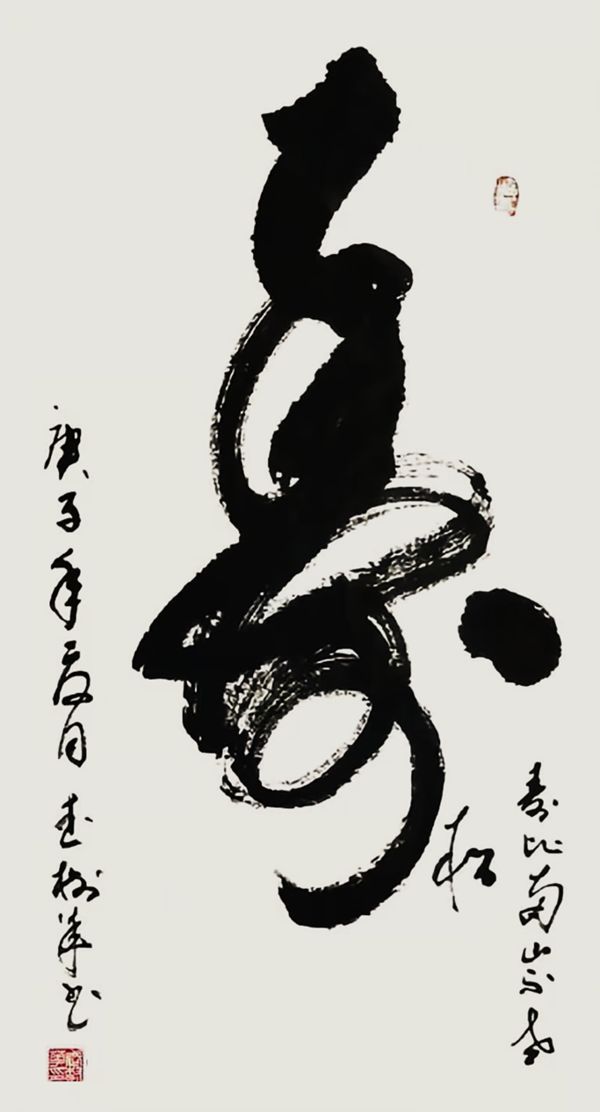 寿
寿比南山不老
松
庚子年夏月 树 书